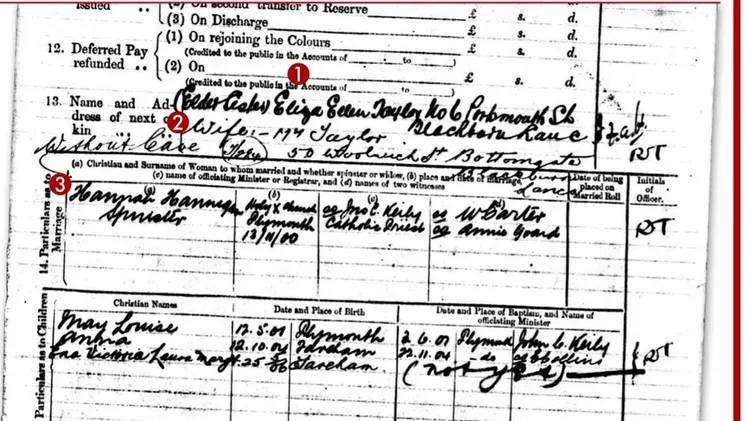 issued .. (2) On second transfer to Reserve £ s. d.
(3) On Discharge £ s. d.
12. Deferred Pay refunded .. (1) On rejoining the Colours £ s. d.
(Credited to the public in the Accounts of to )
(2) On £ s. d.
1
(Credited to the public in the Accounts of to )
13. Name and Ad- (Elder Sister) Eliza Ellen Taylor No 6 Portsmouth St
dress of next of 2 Wife:- Taylor Blackburn Lanc
kin ... Without Leave 50 Woolwich St. Bottomgate RT
Blackburn Lancs
(a) Christian and Surname of Woman to whom married and whether spinster or widow, (b) place and date of marriage,
(c) name of officiating Minister or Registrar, and (d) names of two witnesses
Date of being placed on Married Roll
Initials of Officer.
14. Particulars as to Marriage
3
(a) (b) (c)
Hannah Hannigan Holy X Church Jno C. Kerby W Carter
Spinster Plymouth Catholic Priest Annie Guard RT
13/11/00
Particulars as to Children
Christian Names Date and Place of Birth Date and Place of Baptism, and Name of
officiating Minister
May Louise 12.5.01 Plymouth 2.6.01 Plymouth John C. Kerby
Anna 12.10.04 Fareham 22.11.04 do Collins RT
Victoria Laura Fareham. (not yet)